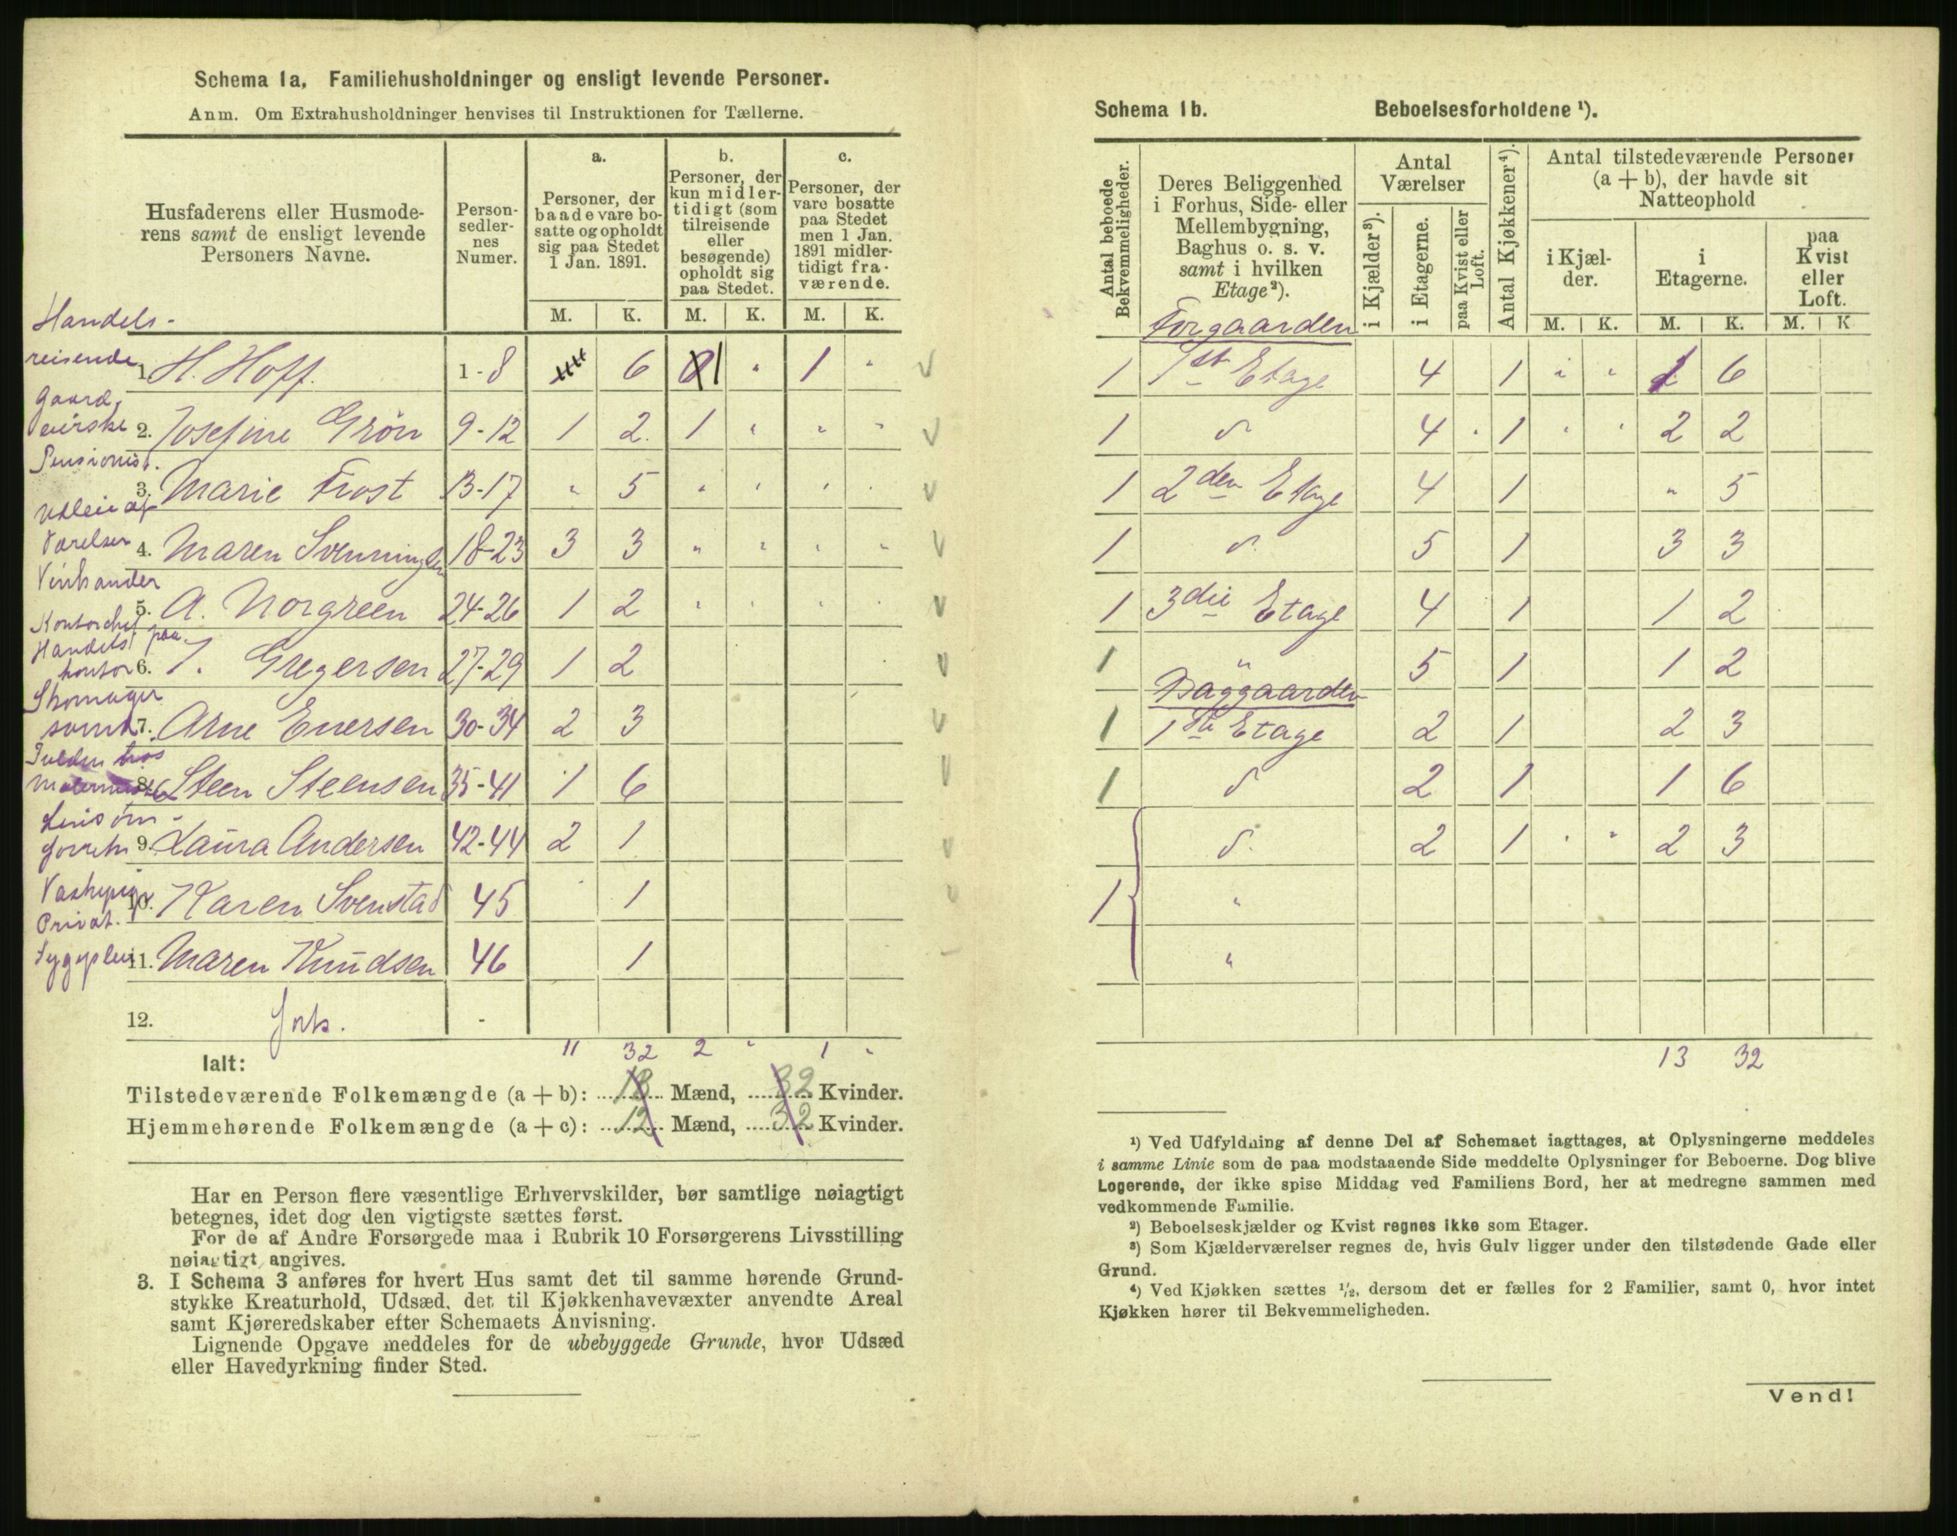 Schema 1a. Familiehusholdninger og ensligt levende Personer.
Anm. Om Extrahusholdninger henvises til Instruktionen for Tællerne.
Husfaderens eller Husmoderens samt de ensligt levende Personers Navne.
Personsedlernes Numer.
a. Personer, der baade vare bosatte og opholdt sig paa Stedet 1 Jan. 1891.
b. Personer, der kun midlertidigt (som tilreisende eller besøgende) opholdt sig paa Stedet.
c. Personer, der vare bosatte paa Stedet men 1 Jan. 1891 midlertidigt fraværende.
M. K. M. K. M. K.
Handels-
reisende 1. H. Hoff. 1 - 8 6 1 " 1 "
Gaard,
eierske 2. Josefine Grön 9-12 1 2. 1 " " "
Pensionist.
3. Marie Frost 13-17 " 5 " " " "
Udleie af
Værelser 4. Maren Svenningsen 18-23 3 3 " " " "
Vinhandler
5. A. Norgreen 24-26 1 2 " " " "
Kontorchef paa
Handels
kontor 6. J. Gregersen 27-29 1 2
Skomager
svend 7. Arne Evensen 30-34 2 3
hos
8. Steen Steensen 35-41 1 6
9. Laura Andersen 42-44 2 1
10. Karen Svenstad 45 1
Privat.
11. Maren Knudsen 46 1
12. Forts. -
Ialt: 11 32 2 " 1 "
Tilstedeværende Folkemængde (a + b): 13 Mænd, 32 Kvinder.
Hjemmehørende Folkemængde (a + c): 12 Mænd, 32 Kvinder.
Har en Person flere væsentlige Erhvervskilder, bør samtlige nøiagtigt
betegnes, idet dog den vigtigste sættes først.
For de af Andre Forsørgede maa i Rubrik 10 Forsørgerens Livsstilling
nøiagtigt angives.
3. I Schema 3 anføres for hvert Hus samt det til samme hørende Grund-
stykke Kreaturhold, Udsæd, det til Kjøkkenhavevæxter anvendte Areal
samt Kjøreredskaber efter Schemaets Anvisning.
Lignende Opgave meddeles for de ubebyggede Grunde, hvor Udsæd
eller Havedyrkning finder Sted.
Schema 1b. Beboelsesforholdene ¹).
Antal beboede Bekvemmeligheder.
Deres Beliggenhed i Forhus, Side- eller Mellembygning, Baghus o. s. v. samt i hvilken Etage²).
Antal Værelser
i Kjælder³).
i Etagerne.
paa Kvist eller Loft.
Antal Kjøkkener⁴).
Antal tilstedeværende Personer (a + b), der havde sit Natteophold
i Kjælder.
i Etagerne.
paa Kvist eller Loft.
M. K. M. K. M. K
Forgaarden
1 1ste Etage 4 1 " " 2 6
1 d 4 " 1 " " 2 2
1 2den Etage 4 1 " 5
1 d. 5 1 3 3
1 3die Etage 4 1 1 2
1 " 5 1 1 2
Baggaarden
1 1ste Etage 2 1 2 3
1 d 2 1 1 6
d. 2 1 " " 2 3
1 "
"
13 32
¹) Ved Udfyldning af denne Del af Schemaet iagttages, at Oplysningerne meddeles
i samme Linie som de paa modstaaende Side meddelte Oplysninger for Beboerne. Dog blive
Logerende, der ikke spise Middag ved Familiens Bord, her at medregne sammen med
vedkommende Familie.
²) Beboelseskjælder og Kvist regnes ikke som Etager.
³) Som Kjælderværelser regnes de, hvis Gulv ligger under den tilstødende Gade eller
Grund.
⁴) Ved Kjøkken sættes ½, dersom det er fælles for 2 Familier, samt 0, hvor intet
Kjøkken hører til Bekvemmeligheden.
Vend!